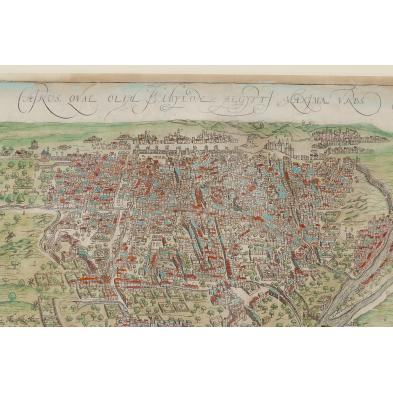 CAIROS, QVAE OLIM BABYLON; AEGYPTI MAXIMA VRBS